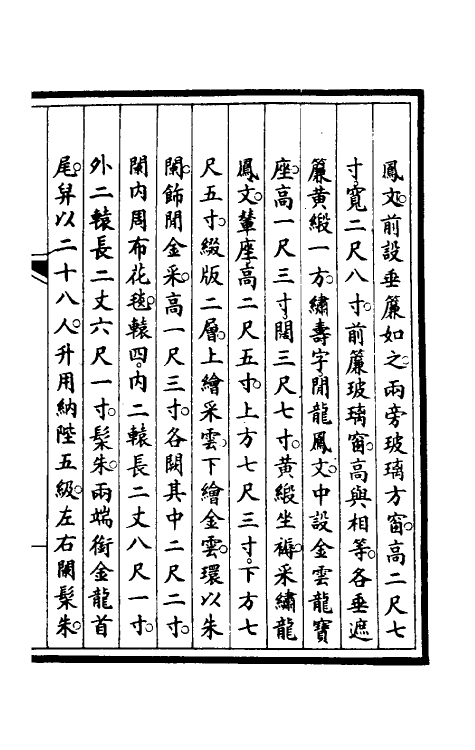 鳳文。前設垂簾如之。兩旁玻璃方窗。高二尺七
寸。寬二尺八寸。前簾玻璃窗。高與相等。各垂遮
簾黃緞一方。繡壽字。閒龍鳳文。中設金雲龍寶
座。高一尺三寸。闊三尺七寸。黃緞坐褥。采繡龍
鳳文。輦座。高二尺五寸。上方七尺三寸。下方七
尺五寸。綴版二層。上繪采雲。下繪金雲。環以朱
闌。飾閒金采。高一尺三寸。各闕其中二尺二寸。
闌内周布花毯。轅四。内二轅長二丈八尺一寸。
外二轅長二丈六尺一寸。髹朱。兩端銜金龍首
尾。舁以二十八人。升用納陛五級。左右闌髹朱。